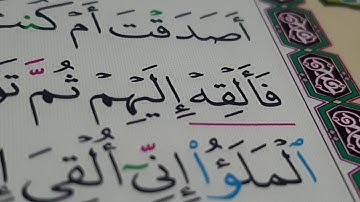 أَصَدَقْتَ أَمْ كُنتَ
فَأَلْقِهْ إِلَيْهِمْ ثُمَّ
الْمَلَؤُا۟ إِنِّىٓ أُلْقِىَ